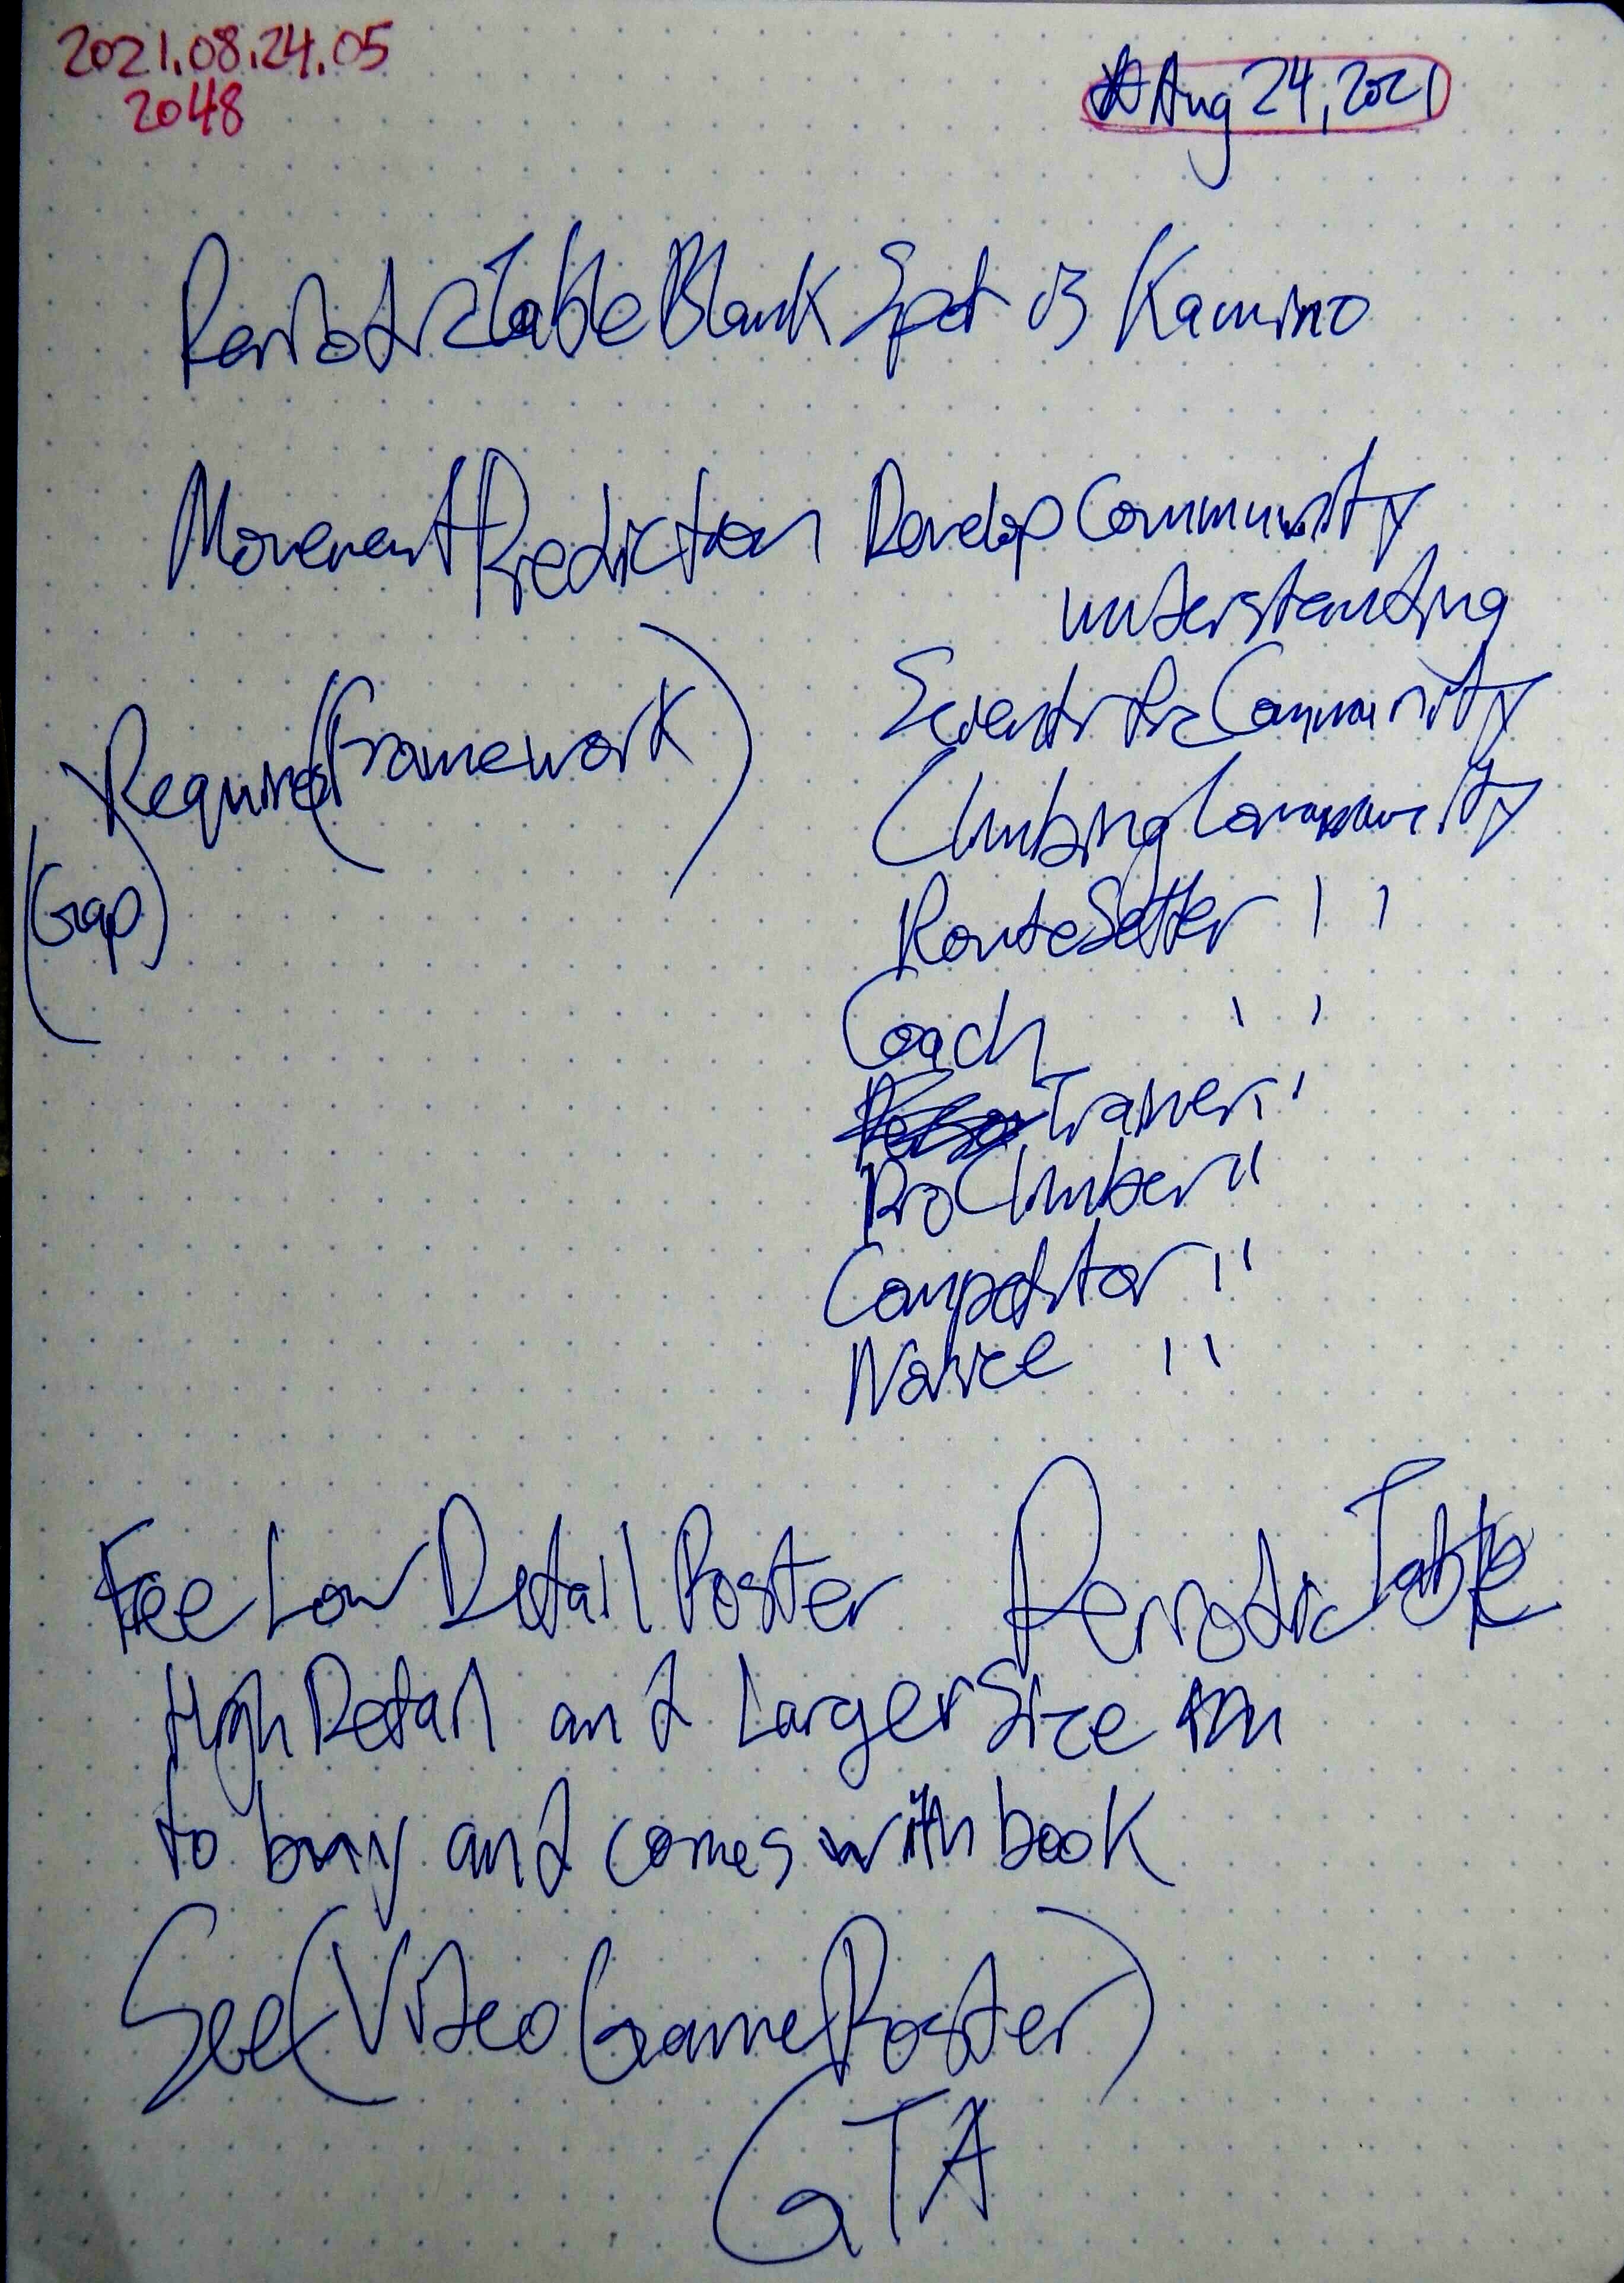 2021.08.24.05
2048
Aug 24, 2021
Periodic Table Blank Spot is Kamino
Movement Prediction
Develop Community
understanding
Required (Framework)
(Gap)
Scientific Community
Climbing Community
Route Setter ' '
Coach ' '
Trainer ' '
Pro Climber ' '
Competitor ' '
Novice ' '
Free Low Detail Poster Periodic Table
High Detail and Larger Size
to buy and comes with book
See (Video Game Poster)
GTA